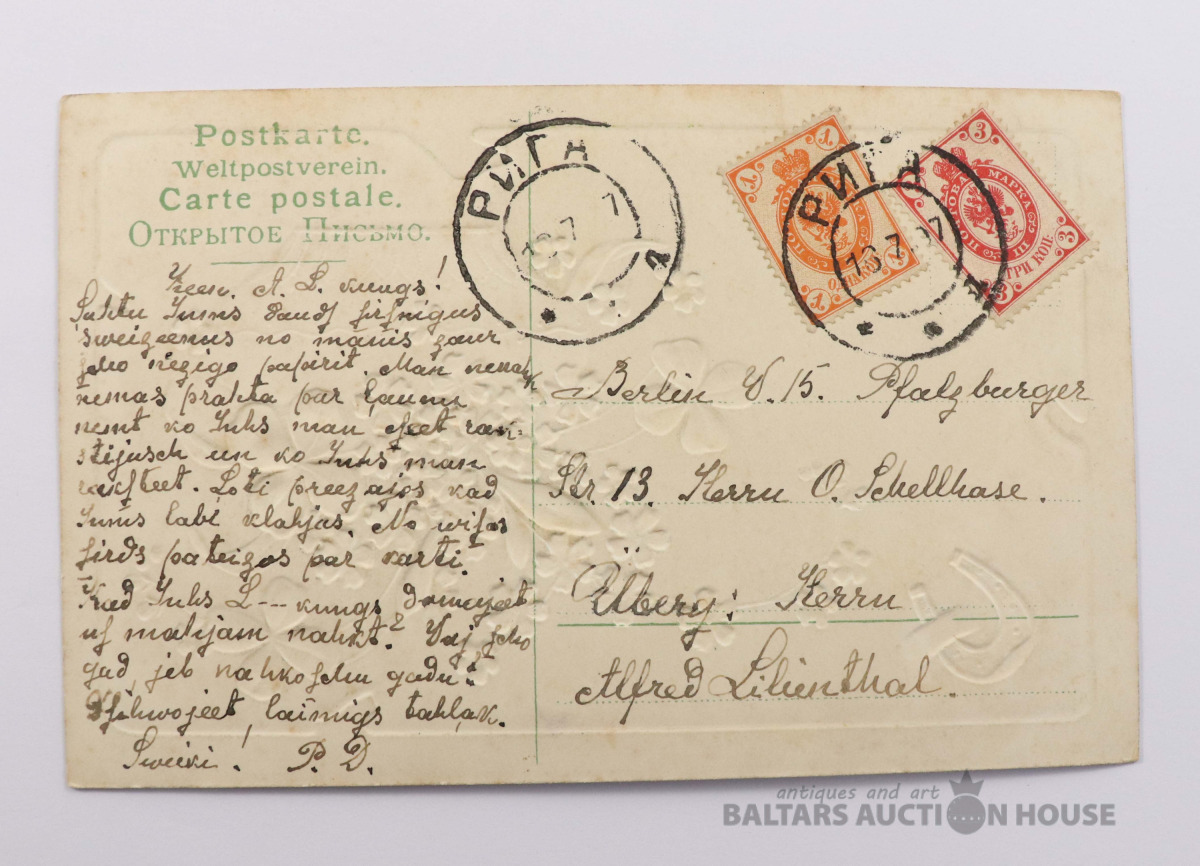 Postkarte.
Weltpostverein.
Carte postale.
Открытое Письмо.
A. L. kungs!
Suhtu Jums daudf firfnigus
sweizeenus no manis zaur
scho neezigo papirit. Man nenahk
nemas prahta par ļaunu
nemt ko Juhs man efeet rak-
stijusch un ko Juhs man
rakfteet. Loti preezajos kad
Jums labi klahjas. No wifas
firds pateizos par karti.
Kad Juhs L--- kungs domajeet
uf mahjam nahkt? Vaj scho
gad, jeb nahkoschu gadu?
Dsihwojeet laimigs tahlak.
Sweiki! P. D.
РИГА
13 7 7
1
РИГА
13 7 07
1
1
1
1
3
3
3
ПОЧТОВАЯ МАРКА
III
ТРИ КОП.
Berlin W. 15. Pfalzburger
Str 13. Herrn O. Schellhase.
Herrn
Alfred Lilienthal.
antiques and art
BALTARS AUCTION HOUSE